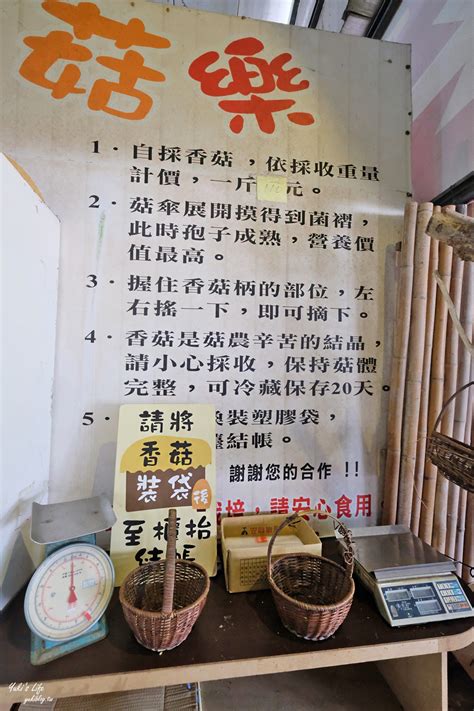 菇樂
1．自採香菇，依採收重量
計價，一斤170元。
2．菇傘展開摸得到菌褶，
此時孢子成熟，營養價
值最高。
3．握住香菇柄的部位，左
右搖一下，即可摘下。
4．香菇是菇農辛苦的結晶，
請小心採收，保持菇體
完整，可冷藏保存20天。
5．換裝塑膠袋，
結帳。
謝謝您的合作!!
請安心食用
請將
香菇
裝袋後
至櫃抬
結帳
Yuki's Life
yukiblog.tw